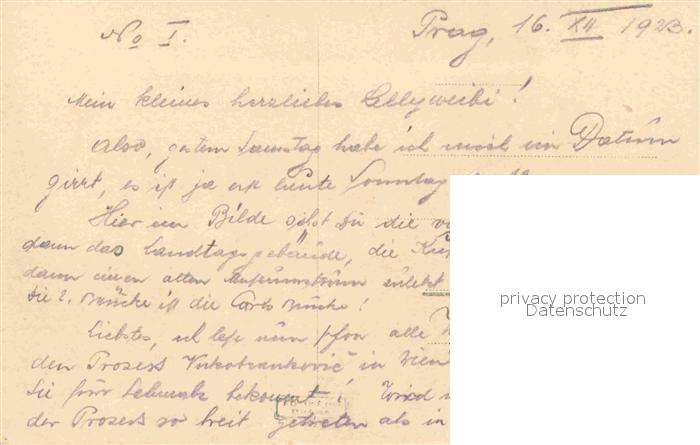 No I.
Prag, 16. XII 1923.
Mein kleines herzliebes Ellyweibi!
Also, gestern Samstag habe ich mich im Datum
girrt, es ist ja erst heute Sonntag
Hier im Bilde siehst Du die
dann das Landtagsgebäude, die
dann einen alten
die 2. Brücke ist die Carls Brücke!
Liebstes, ich lese nun schon alle
den Prozess in Wien
Sie für bekommt! Wird
der Prozess so breit getreten als in
privacy protection
Datenschutz